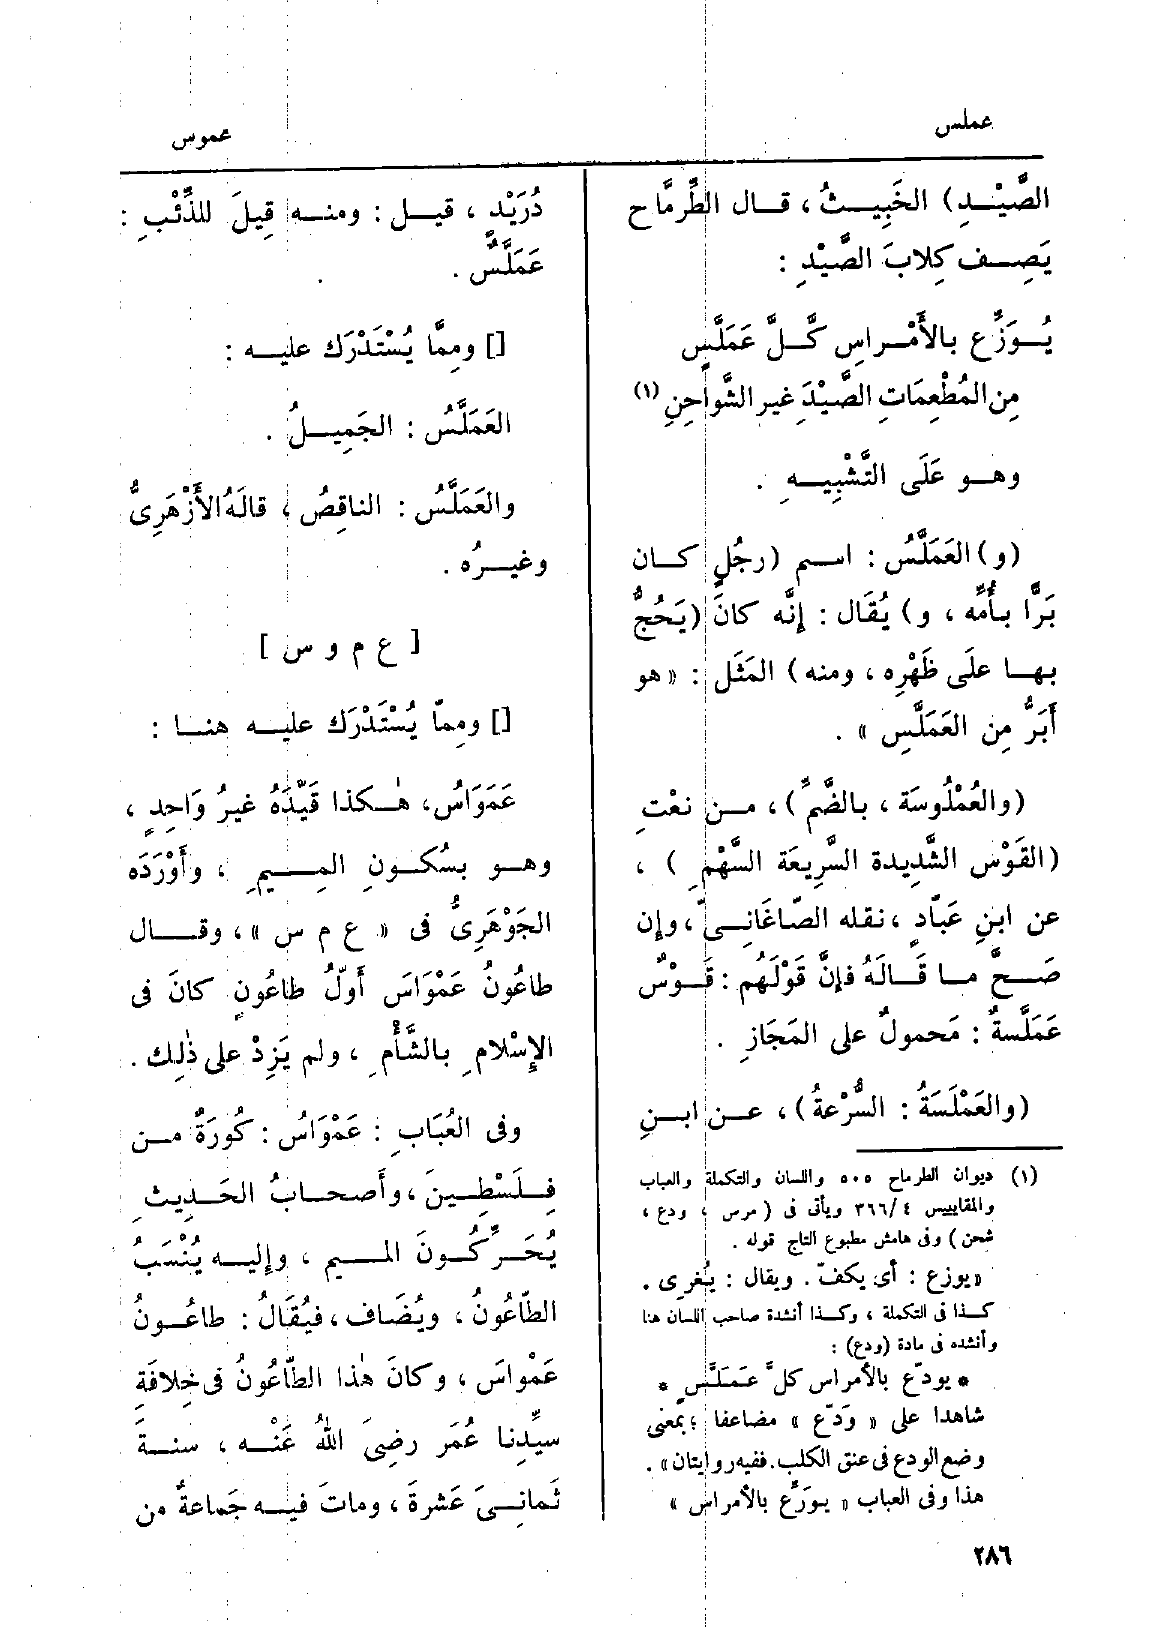 عملس
عموس
الصَّيْـدِ) الخَبِيـثُ ، قـال الطِّرِمَّاح
يَصِـف كِلابَ الصَّيْدِ :
يُـوَزِّع بالأَمْـراسِ كُـلَّ عَمَلَّسٍ
مِن المُطْعِمَاتِ الصَّيْدَ غير الشَّواحِنِ (١)
وهـو عَلَى التَّشْبِيـهِ .
(و) العَمَلَّسُ : اسـم (رجُلٍ كـان
بَرًّا بـأُمِّه ، و) يُقَال : إِنَّه كانَ (يَحُجُّ
بهـا علَى ظَهْرِه ، ومنه) المَثَل : « هو
أَبَرُّ مِن العَمَلَّسِ » .
(والعُمْلُوسَة ، بالضَّمّ) ، مـن نعْتِ
(القَوْس الشَّدِيدة السَّرِيعَة السَّهْمِ ) ،
عن ابنِ عَبّادٍ ، نقله الصّاغَانِـيّ ، وإِن
صَـحَّ مـا قَـالَهُ فإِنَّ قَوْلَهُم : قَـوْسٌ
عَمَلَّسةٌ : مَحمولٌ على المَجَازِ .
(والعَمْلَسَةُ : السُّرْعةُ) ، عـن ابـنِ
(١) ديوان الطرماح ٥٠٥ واللسان والتكملة والعباب
والمقاييس ٤ /٣٦٦ ويأتى فى ( مرس ، ودع ،
شحن ) وفى هامش مطبوع التاج قوله .
«يوزع : أى يكفّ . ويقال : يُغرى .
كـذا فى التكملة ، وكـذا أنشدة صاحب اللسان هنا
وأنشده فى مادة (ودع) :
* يودّع بالأمراس كلَّ عَمَلَّسٍ *
شاهدا على « وَدّع » مضاعفا ؛ بمعنى
وضع الودع فى عنق الكلب. ففيه روايتان» .
هذا وفى العباب « يـوَزِّع بالأمراس »
دُرَيْدٍ ، قيـل : ومنـه قِيلَ للذِّئْبِ :
عَمَلَّسٌ .
[] ومِمَّا يُسْتَدْرَك عليـه :
العَمَلَّسُ : الجَمِيـلُ .
والعَمَلَّسُ : الناقِصُ ، قالَهُ الأَزْهَرِىُّ
وغيـرُه .
[ ع م و س ]
[] ومِمّا يُسْتَدْرَك عليـه هنـا :
عَمَوَاسُ، هٰـكذا قَيَّدَهُ غيرُ وَاحِدٍ ،
وهـو بسُكـونِ المِـيمِ ، وأَوْرَدَه
الجَوْهَرِىُّ فى « ع م س » ، وقـال
طاعُونُ عَمْوَاسَ أَوّلُ طاعُونٍ كانَ فى
الإِسْلامِ بالشَّأْمِ ، ولم يَزِدْ على ذٰلِك .
وفى العُبَابِ : عَمْوَاسُ : كُورَةٌ مـن
فِلَسْطِـينَ ، وأَصـحابُ الحَـدِيثِ
يُحَـرِّكُـونَ المـيم ، وإِليـه يُنْسَبُ
الطّاعُونُ ، ويُضَاف ، فيُقَالُ : طاعُـونُ
عَمْواسَ ، وكانَ هٰذا الطّاعُونُ فى خِلافَةِ
سيِّدِنا عُمَر رضِىَ اللهُ عَنْـه ، سنـةَ
ثَمانِـىَ عَشرةَ ، وماتَ فيـه جَماعةٌ من
٢٨٦